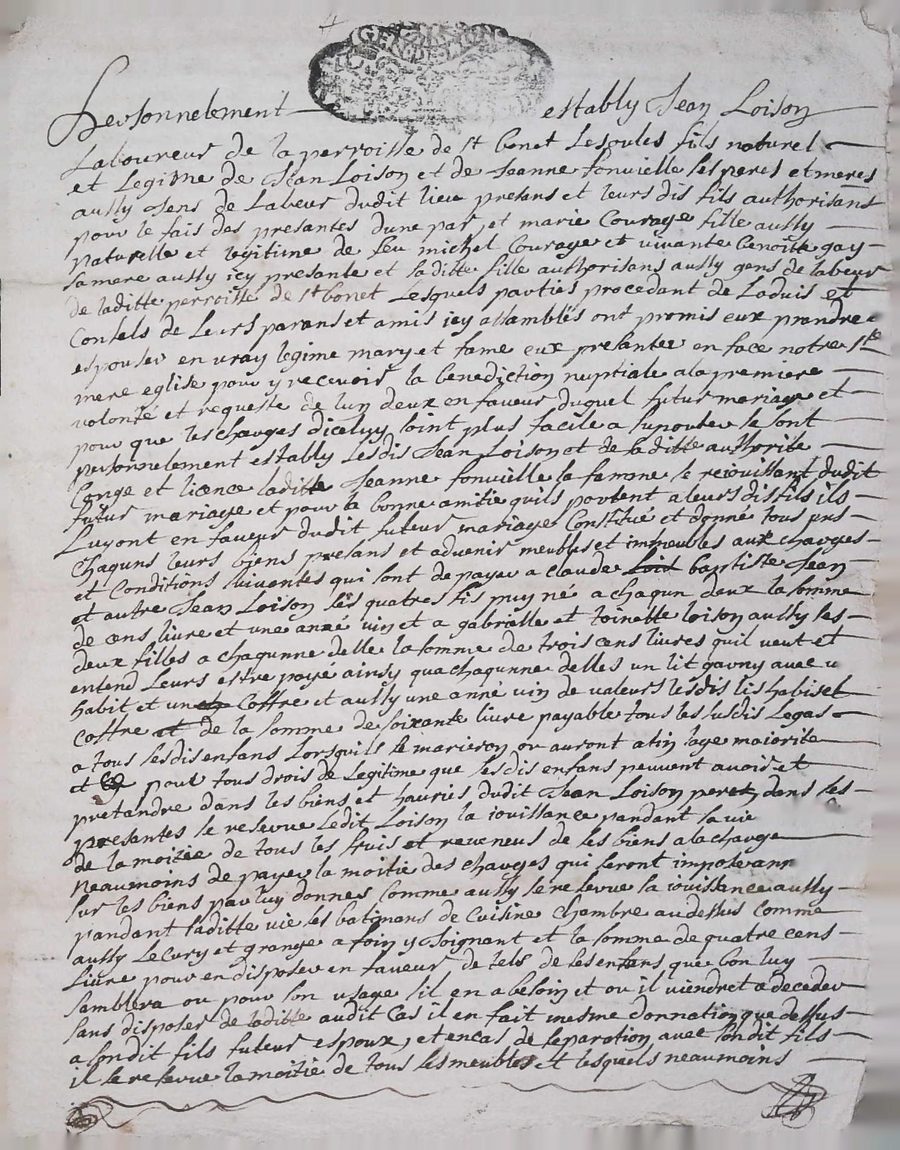 GEN DE LION
Personnelement estably Jean Loison
Laboureur de la perroisse de st bonet Lesoules fils naturel
et Legitime de Jean Loison et de Jeanne fonvielle ses peres et meres
aussy Jens de Labeur dudit lieu presans et leurs dis fils authorisans
pour le fais des presantes dune par, et marie Courage fille aussy
naturelle et legitime de feu michel Courage et vivante benoitte gay
sa mere aussy icy presante et laditte fille authorisans aussy gens de labeur
de laditte perroisse de st bonet Lesquels parties procedant de Laduis et
Consels de Leurs parans et amis icy assamblés ont promis eux prandre
espouser en vray legime mary et fame eux presanter en face notre ste
mere eglise pour y recevois la benediction nuptiale a la premiere
volonté et requeste de lun deux en faveur duquel futur mariage et
pour que les charges diceluy soint plus facile a suporter se sont
personnelement estably Lesdis Jean Loison et de saditte authorite
Conge et licence laditte Jeanne fonvielle sa famme se rejouissant dudit
futur mariage et pour la bonne amitie quils portent a leurs dis fils ils
Luy ont en faveur dudit futeur mariage Constitué et donné tous
Chaguns leurs biens presans et advenir meubles et immeubles aux charges
et Conditions suiventes qui sont de payer a claude baptiste Jean
et autre Jean Loison ses quatres fis puy né a chagun deux la somme
de cens livre et une anné vin et a gabrielle et toinette loison aussy ses
deux filles a chagunne delle la somme de trois cens livres quil veut et
entend Leurs estre payé ainsy qua chagunne delles un lit garny avec
habit et un Coffre et aussy une anné vin de valeurs lesdis lis habis et
coffre de la somme de soixante livre payable tous les susdis Legas
a tous sesdis enfans Lorsquils se marieron ou auront atin lage maiorite
et pour tous drois de Legitime que lesdis enfans peuvent avois et
pretandre dans les biens et hauries dudit Jean Loison pere, dans les
presantes se reserve Ledit Loison la iouissance pandant sa vie
de la moitie de tous les fruis et reveneus de ses biens a la charge
neaumoins de payer la moitie des charges qui seront imposer
sur les biens par luy donnes Comme aussy se reserve la iouissance aussy
pandant saditte vie les batimans de Cuisine Chambre au dessus comme
aussy Lecury et grange a foin y Joignant et la somme de quatre cens
livre pour en disposer en faveur de tels de ses enfans que bon luy
samblera ou pour son usage sil en a besoin et ou il viendret a deceder
sans disposer de laditte audit Cas il en fait mesme donnation que dessus
a sondit fils futeur espoux, et en cas de separation avec sondit fils
il se reserve la moitie de tous ses meubles et lesquels neaumoins